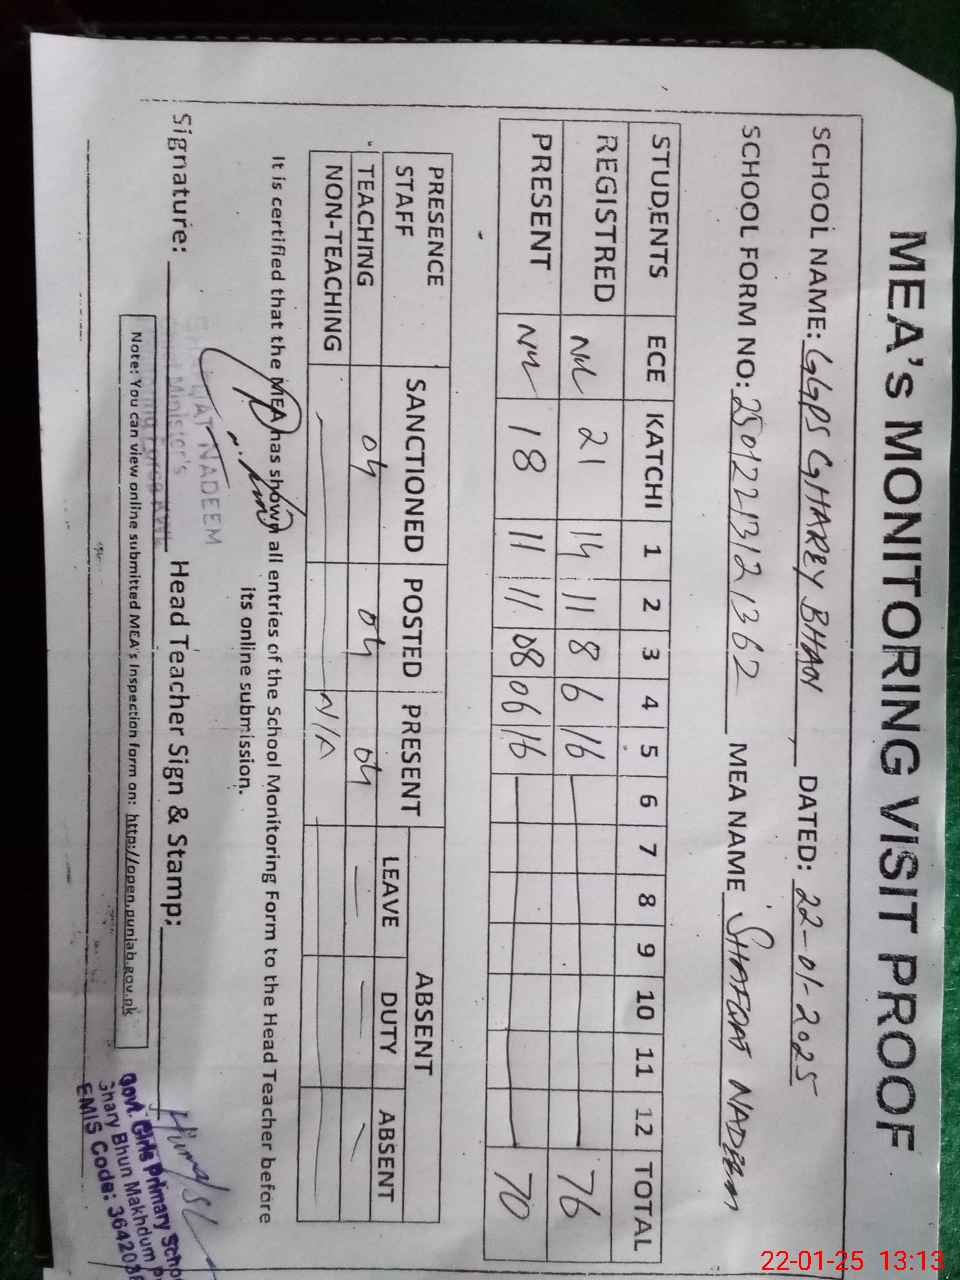 MEA's MONITORING VISIT PROOF
SCHOOL NAME: GGPS GHAREY BHAN DATED: 22-01-2025
SCHOOL FORM NO: MEA NAME SHAFQAT NADEEM
STUDENTS ECE KATCHI 1 2 3 4 5 6 7 8 9 10 11 12 TOTAL
REGISTRED Nil 21 14 11 8 6 16 76
PRESENT Nil 18 11 11 08 06 16 70
PRESENCE STAFF SANCTIONED POSTED PRESENT ABSENT
LEAVE DUTY ABSENT
TEACHING 04 04 04 — — —
NON-TEACHING N/A
It is certified that the MEA has shown all entries of the School Monitoring Form to the Head Teacher before
its online submission.
Signature: Head Teacher Sign & Stamp:
NADEEM
Note: You can view online submitted MEA's Inspection form on: http://open.punjab.gov.pk
Govt. Girls Primary
Ghary Bhun Makhdum
EMIS Code:
22-01-25 13:13